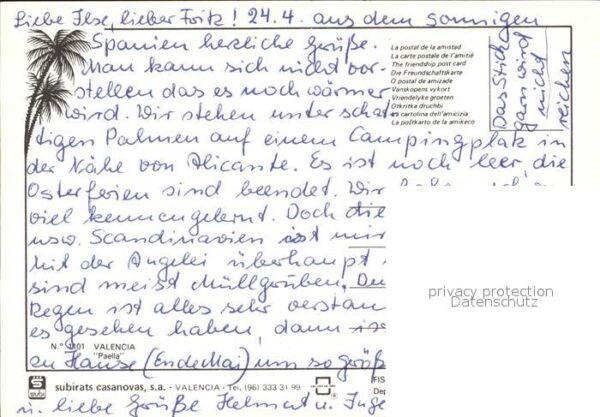 Liebe Ilse, lieber Fritz! 24.4. aus dem sonnigen
Spanien herzliche Grüße.
Man kann sich nicht vor-
stellen das es noch wärmer
wird. Wir stehen unter schat-
tigen Palmen auf einem Campingplatz in
der Nähe von Alicante. Es ist noch leer, die
Osterferien sind beendet. Wir
viel kennengelernt. Doch die
usw. Scandinavien ist mir
Mit der Angelei überhaupt
sind meist Müllgruben. Du
Regen ist alles sehr
es gesehen haben, dann
Hause (Ende Mai) um so
u. liebe Grüße Helmut u. Inge
Das Stick-
garn wird
nicht
reichen
La postal de la amistad
La carte postale de l'amitié
The friendship post card
Die Freundschaftskarte
O postal de amizade
Vanskopens vykort
Vriendelyke groeten
Otkritka druchbi
La cartolina dell'amicizia
La poŝtkarto de la amikeco
N.º 1101 VALENCIA
"Paella"
subi
subirats casanovas, s.a. - VALENCIA - Tel. (96) 333 31 99
FIS
Dep
privacy protection
Datenschutz